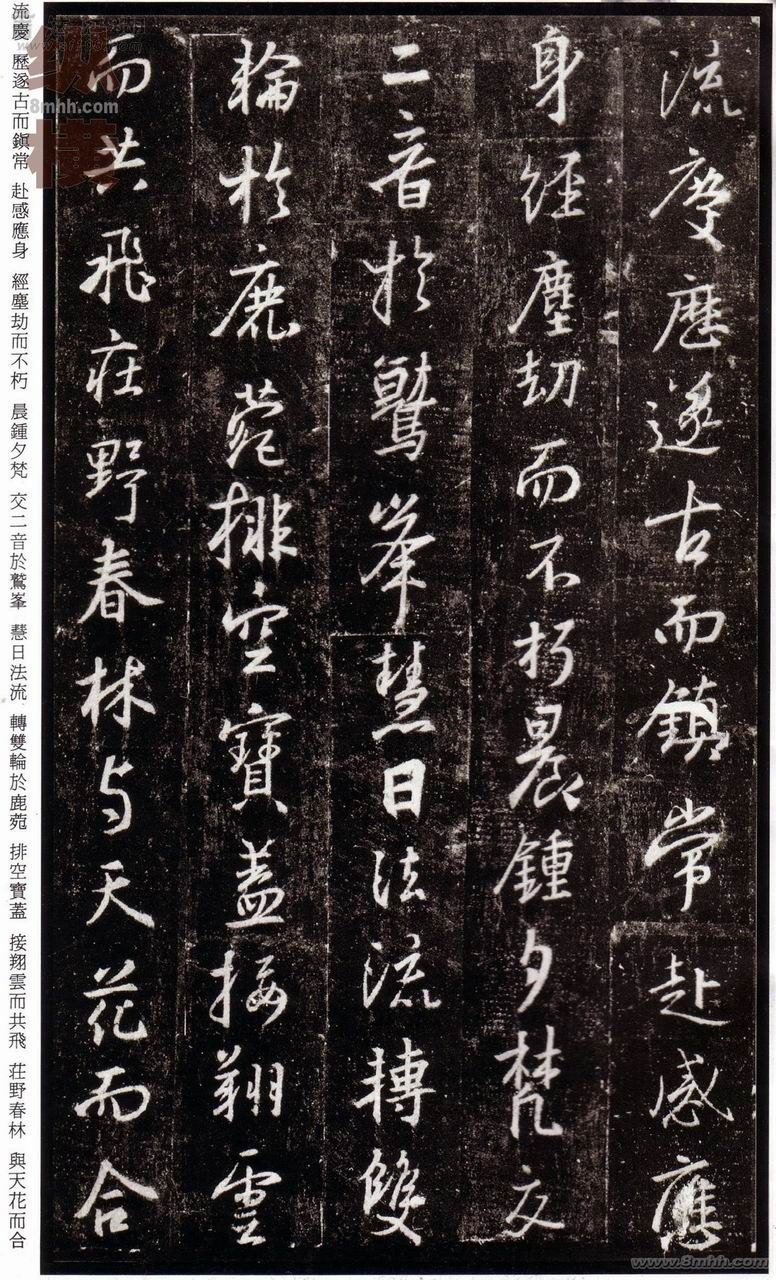 流慶歷遂古而鎮常赴感應
身經塵劫而不朽晨鍾夕梵交
二音於鷲峯慧日法流轉雙
輪於鹿菀排空寶蓋接翔雲
而共飛莊野春林与天花而合
流慶 歷遂古而鎭常 赴感應身 經塵劫而不朽 晨鍾夕梵 交二音於鷲峯 慧日法流 轉雙輪於鹿菀 排空寶蓋 接翔雲而共飛 莊野春林 與天花而合
纵横
8mhh.com
www.8mhh.com